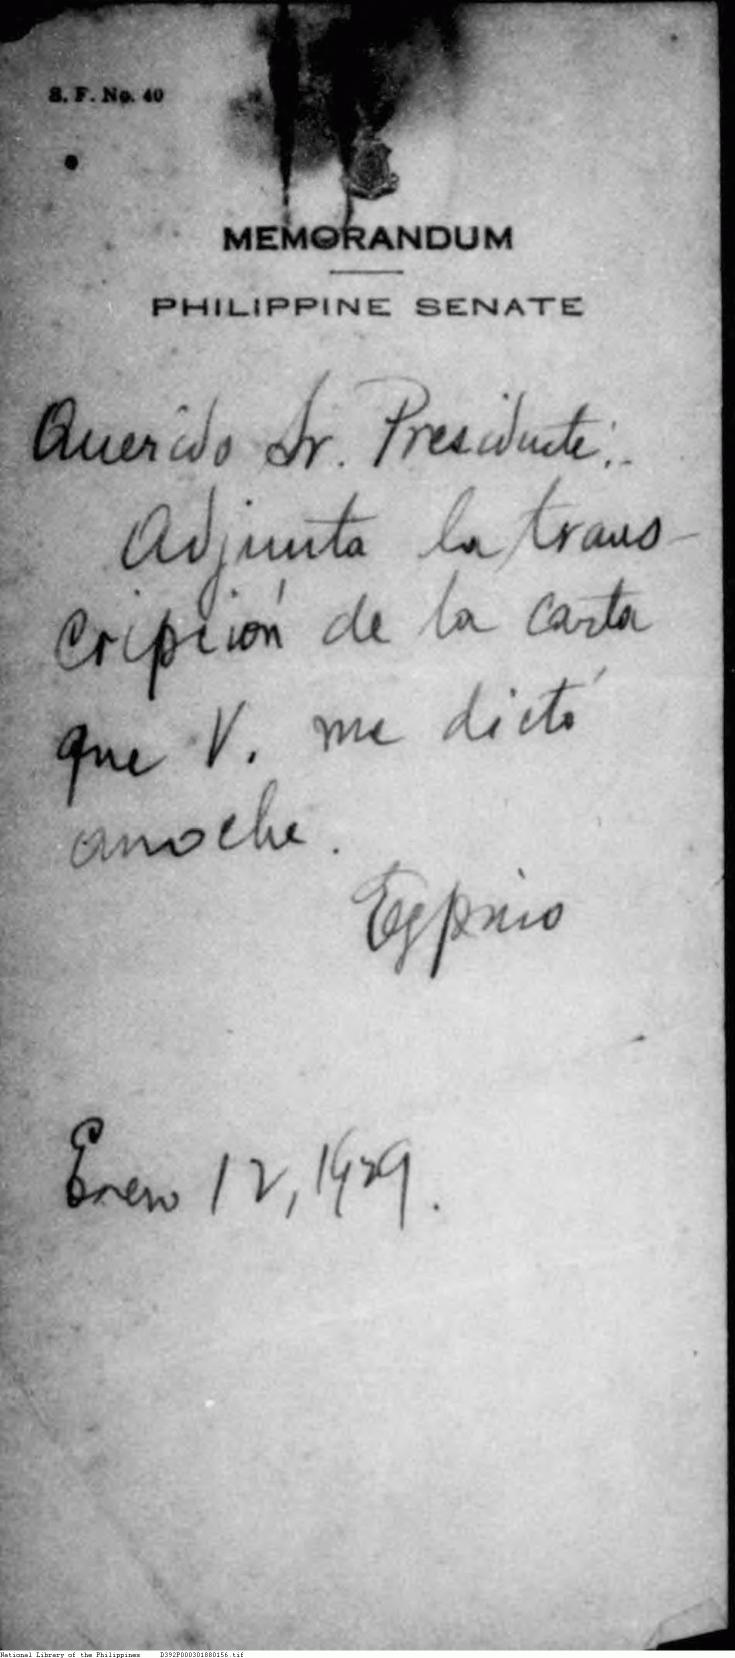 S. F. No. 40
MEMORANDUM
PHILIPPINE SENATE
Querido Sr. Presidente:
Adjunta la trans-
cripción de la carta
que V. me dictó
anoche.
Enero 12, 1929.
National Library of the Philippines D392P000301880156.tif